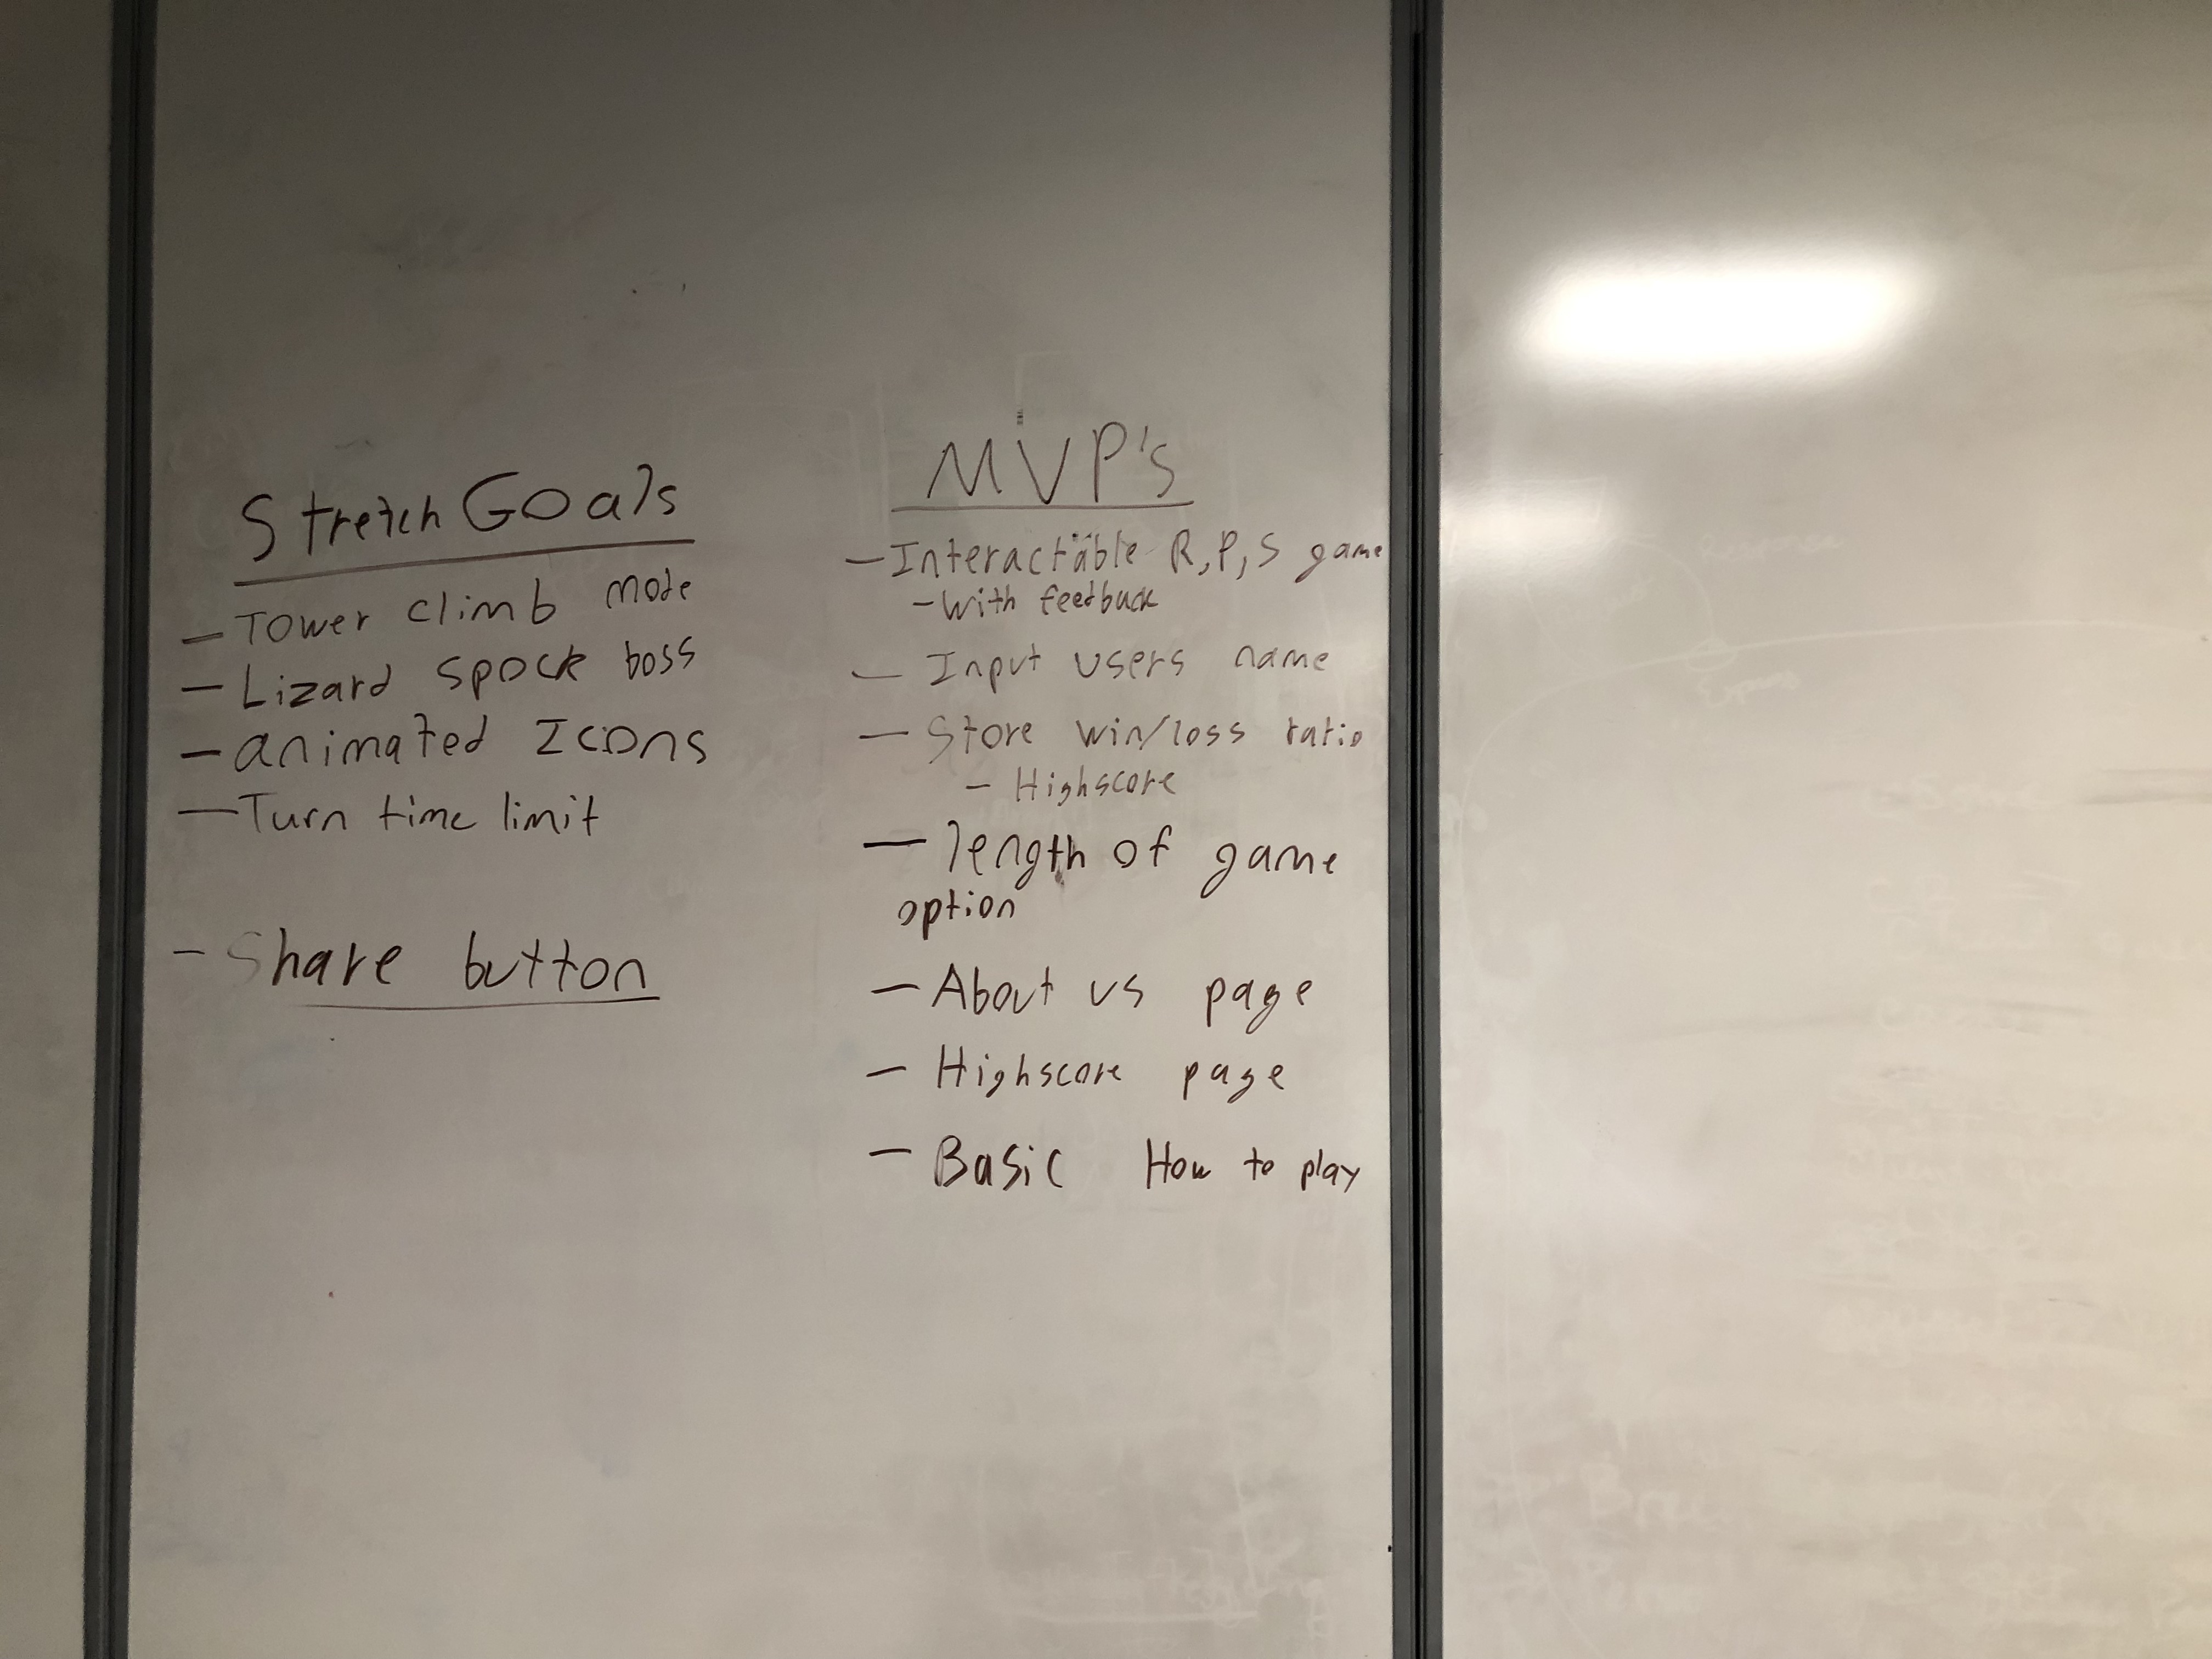 Stretch Goals
- Tower climb mode
- Lizard spock boss
- animated Icons
- Turn time limit
- Share button
MVP's
- Interactable R,P,S game
- With feedback
- Input users name
- Store win/loss ratio
- Highscore
- length of game
option
- About us page
- Highscore page
- Basic How to play